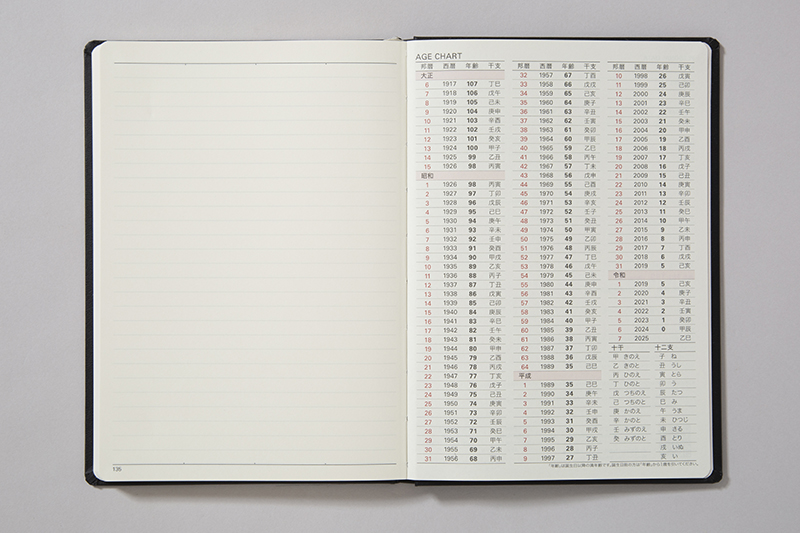 AGE CHART
邦暦 西暦 年齢 干支
大正
6 1917 107 丁巳
7 1918 106 戊午
8 1919 105 己未
9 1920 104 庚申
10 1921 103 辛酉
11 1922 102 壬戌
12 1923 101 癸亥
13 1924 100 甲子
14 1925 99 乙丑
15 1926 98 丙寅
昭和
1 1926 98 丙寅
2 1927 97 丁卯
3 1928 96 戊辰
4 1929 95 己巳
5 1930 94 庚午
6 1931 93 辛未
7 1932 92 壬申
8 1933 91 癸酉
9 1934 90 甲戌
10 1935 89 乙亥
11 1936 88 丙子
12 1937 87 丁丑
13 1938 86 戊寅
14 1939 85 己卯
15 1940 84 庚辰
16 1941 83 辛巳
17 1942 82 壬午
18 1943 81 癸未
19 1944 80 甲申
20 1945 79 乙酉
21 1946 78 丙戌
22 1947 77 丁亥
23 1948 76 戊子
24 1949 75 己丑
25 1950 74 庚寅
26 1951 73 辛卯
27 1952 72 壬辰
28 1953 71 癸巳
29 1954 70 甲午
30 1955 69 乙未
31 1956 68 丙申
邦暦 西暦 年齢 干支
32 1957 67 丁酉
33 1958 66 戊戌
34 1959 65 己亥
35 1960 64 庚子
36 1961 63 辛丑
37 1962 62 壬寅
38 1963 61 癸卯
39 1964 60 甲辰
40 1965 59 乙巳
41 1966 58 丙午
42 1967 57 丁未
43 1968 56 戊申
44 1969 55 己酉
45 1970 54 庚戌
46 1971 53 辛亥
47 1972 52 壬子
48 1973 51 癸丑
49 1974 50 甲寅
50 1975 49 乙卯
51 1976 48 丙辰
52 1977 47 丁巳
53 1978 46 戊午
54 1979 45 己未
55 1980 44 庚申
56 1981 43 辛酉
57 1982 42 壬戌
58 1983 41 癸亥
59 1984 40 甲子
60 1985 39 乙丑
61 1986 38 丙寅
62 1987 37 丁卯
63 1988 36 戊辰
64 1989 35 己巳
平成
1 1989 35 己巳
2 1990 34 庚午
3 1991 33 辛未
4 1992 32 壬申
5 1993 31 癸酉
6 1994 30 甲戌
7 1995 29 乙亥
8 1996 28 丙子
9 1997 27 丁丑
邦暦 西暦 年齢 干支
10 1998 26 戊寅
11 1999 25 己卯
12 2000 24 庚辰
13 2001 23 辛巳
14 2002 22 壬午
15 2003 21 癸未
16 2004 20 甲申
17 2005 19 乙酉
18 2006 18 丙戌
19 2007 17 丁亥
20 2008 16 戊子
21 2009 15 己丑
22 2010 14 庚寅
23 2011 13 辛卯
24 2012 12 壬辰
25 2013 11 癸巳
26 2014 10 甲午
27 2015 9 乙未
28 2016 8 丙申
29 2017 7 丁酉
30 2018 6 戊戌
31 2019 5 己亥
令和
1 2019 5 己亥
2 2020 4 庚子
3 2021 3 辛丑
4 2022 2 壬寅
5 2023 1 癸卯
6 2024 0 甲辰
7 2025 乙巳
十干 十二支
甲 きのえ 子 ね
乙 きのと 丑 うし
丙 ひのえ 寅 とら
丁 ひのと 卯 う
戊 つちのえ 辰 たつ
己 つちのと 巳 み
庚 かのえ 午 うま
辛 かのと 未 ひつじ
壬 みずのえ 申 さる
癸 みずのと 酉 とり
戌 いぬ
亥 い
135